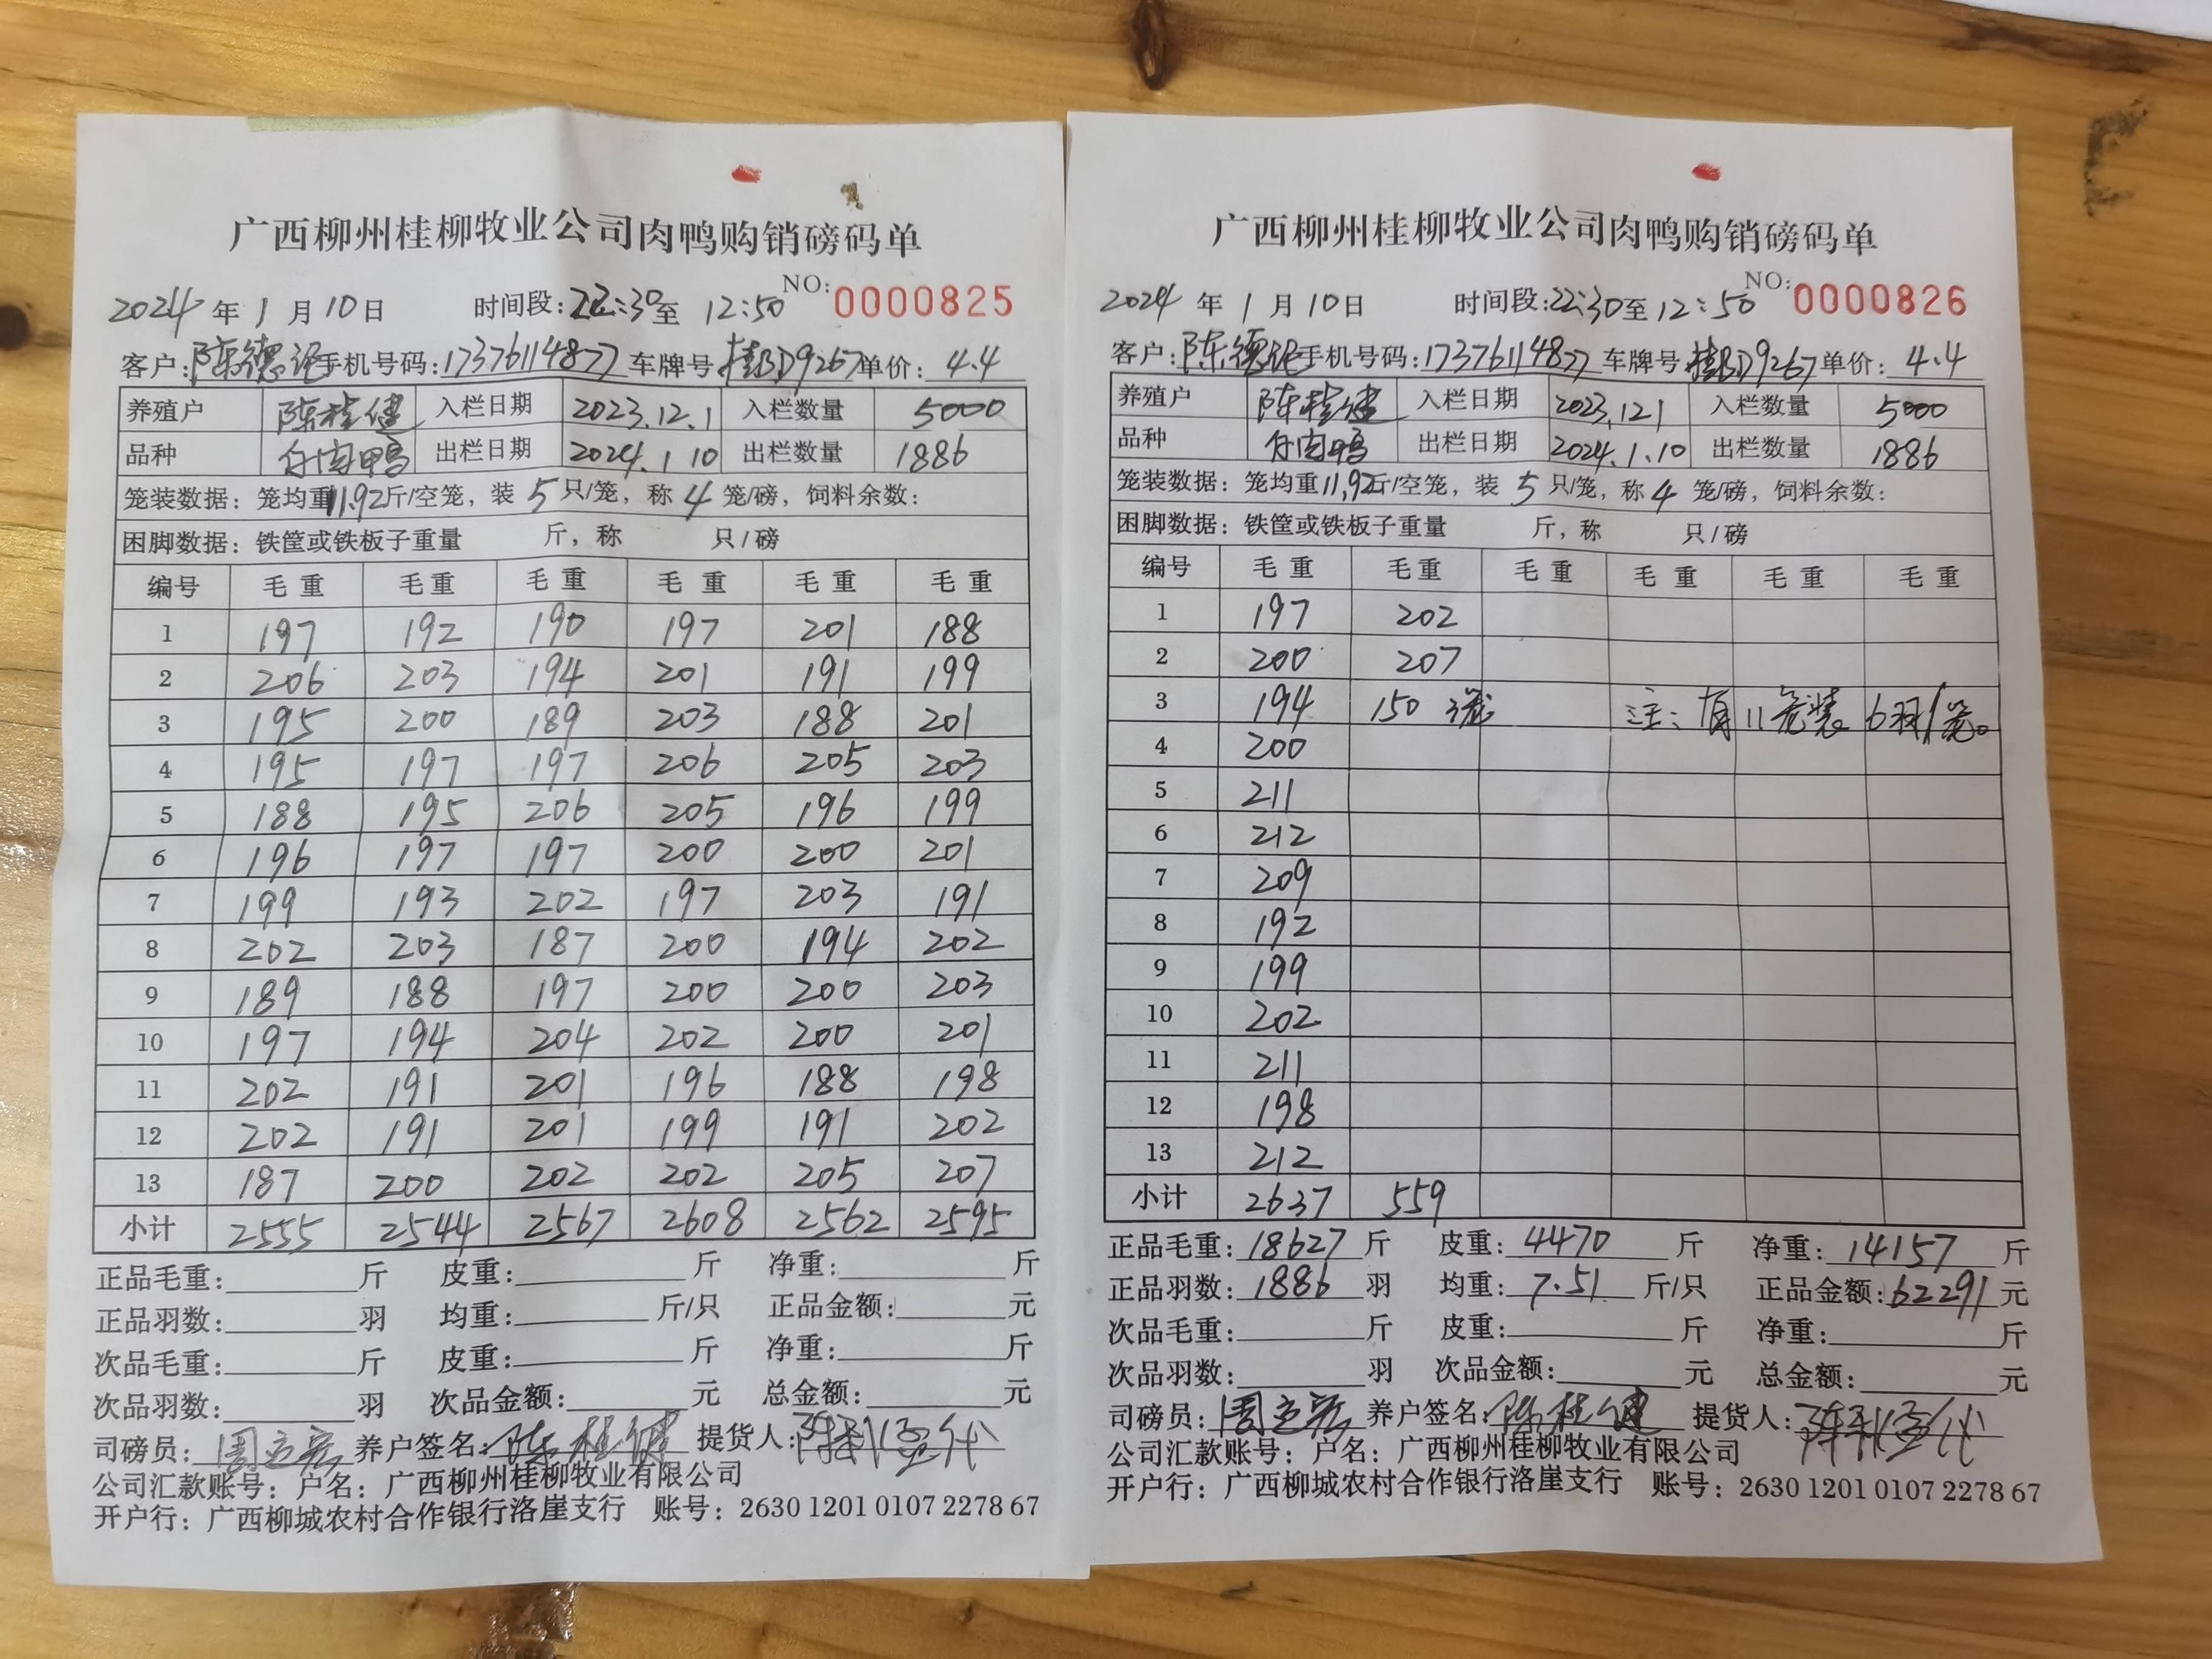 广西柳州桂柳牧业公司肉鸭购销磅码单
NO: 0000825
2024 年 1 月 10 日 时间段: 22:30 至 12:50
客户: 陈德 手机号码: 17376114877 车牌号 桂BD9267 单价: 4.4
养殖户 陈桂健 入栏日期 2023.12.1 入栏数量 5000
品种 白肉鸭 出栏日期 2024.1.10 出栏数量 1886
笼装数据: 笼均重 11.92 斤/空笼, 装 5 只/笼, 称 4 笼/磅, 饲料余数:
困脚数据: 铁筐或铁板子重量 斤, 称 只/磅
编号 毛重 毛重 毛重 毛重 毛重 毛重
1 197 192 190 197 201 188
2 206 203 194 201 191 199
3 195 200 189 203 188 201
4 195 197 197 206 205 203
5 188 195 206 205 196 199
6 196 197 197 200 200 201
7 199 193 202 197 203 191
8 202 203 187 200 194 202
9 189 188 197 200 200 203
10 197 194 204 202 200 201
11 202 191 201 196 188 198
12 202 191 201 199 191 202
13 187 200 202 202 205 207
小计 2555 2544 2567 2608 2562 2595
正品毛重: 斤 皮重: 斤 净重: 斤
正品羽数: 羽 均重: 斤/只 正品金额: 元
次品毛重: 斤 皮重: 斤 净重: 斤
次品羽数: 羽 次品金额: 元 总金额: 元
司磅员: 周 养户签名: 陈桂健 提货人: 代
公司汇款账号: 户名: 广西柳州桂柳牧业有限公司
开户行: 广西柳城农村合作银行洛崖支行 账号: 2630 1201 0107 2278 67
广西柳州桂柳牧业公司肉鸭购销磅码单
NO: 0000826
2024 年 1 月 10 日 时间段: 22:30 至 12:50
客户: 陈德 手机号码: 17376114877 车牌号 桂BD9267 单价: 4.4
养殖户 陈桂健 入栏日期 2023.12.1 入栏数量 5000
品种 白肉鸭 出栏日期 2024.1.10 出栏数量 1886
笼装数据: 笼均重 11.92 斤/空笼, 装 5 只/笼, 称 4 笼/磅, 饲料余数:
困脚数据: 铁筐或铁板子重量 斤, 称 只/磅
编号 毛重 毛重 毛重 毛重 毛重 毛重
1 197 202
2 200 207
3 194 150 3笼 注: 有11笼装6羽/笼。
4 200
5 211
6 212
7 209
8 192
9 199
10 202
11 211
12 198
13 212
小计 2637 559
正品毛重: 18627 斤 皮重: 4470 斤 净重: 14157 斤
正品羽数: 1886 羽 均重: 7.51 斤/只 正品金额: 62291 元
次品毛重: 斤 皮重: 斤 净重: 斤
次品羽数: 羽 次品金额: 元 总金额: 元
司磅员: 周 养户签名: 陈桂健 提货人: 代
公司汇款账号: 户名: 广西柳州桂柳牧业有限公司
开户行: 广西柳城农村合作银行洛崖支行 账号: 2630 1201 0107 2278 67